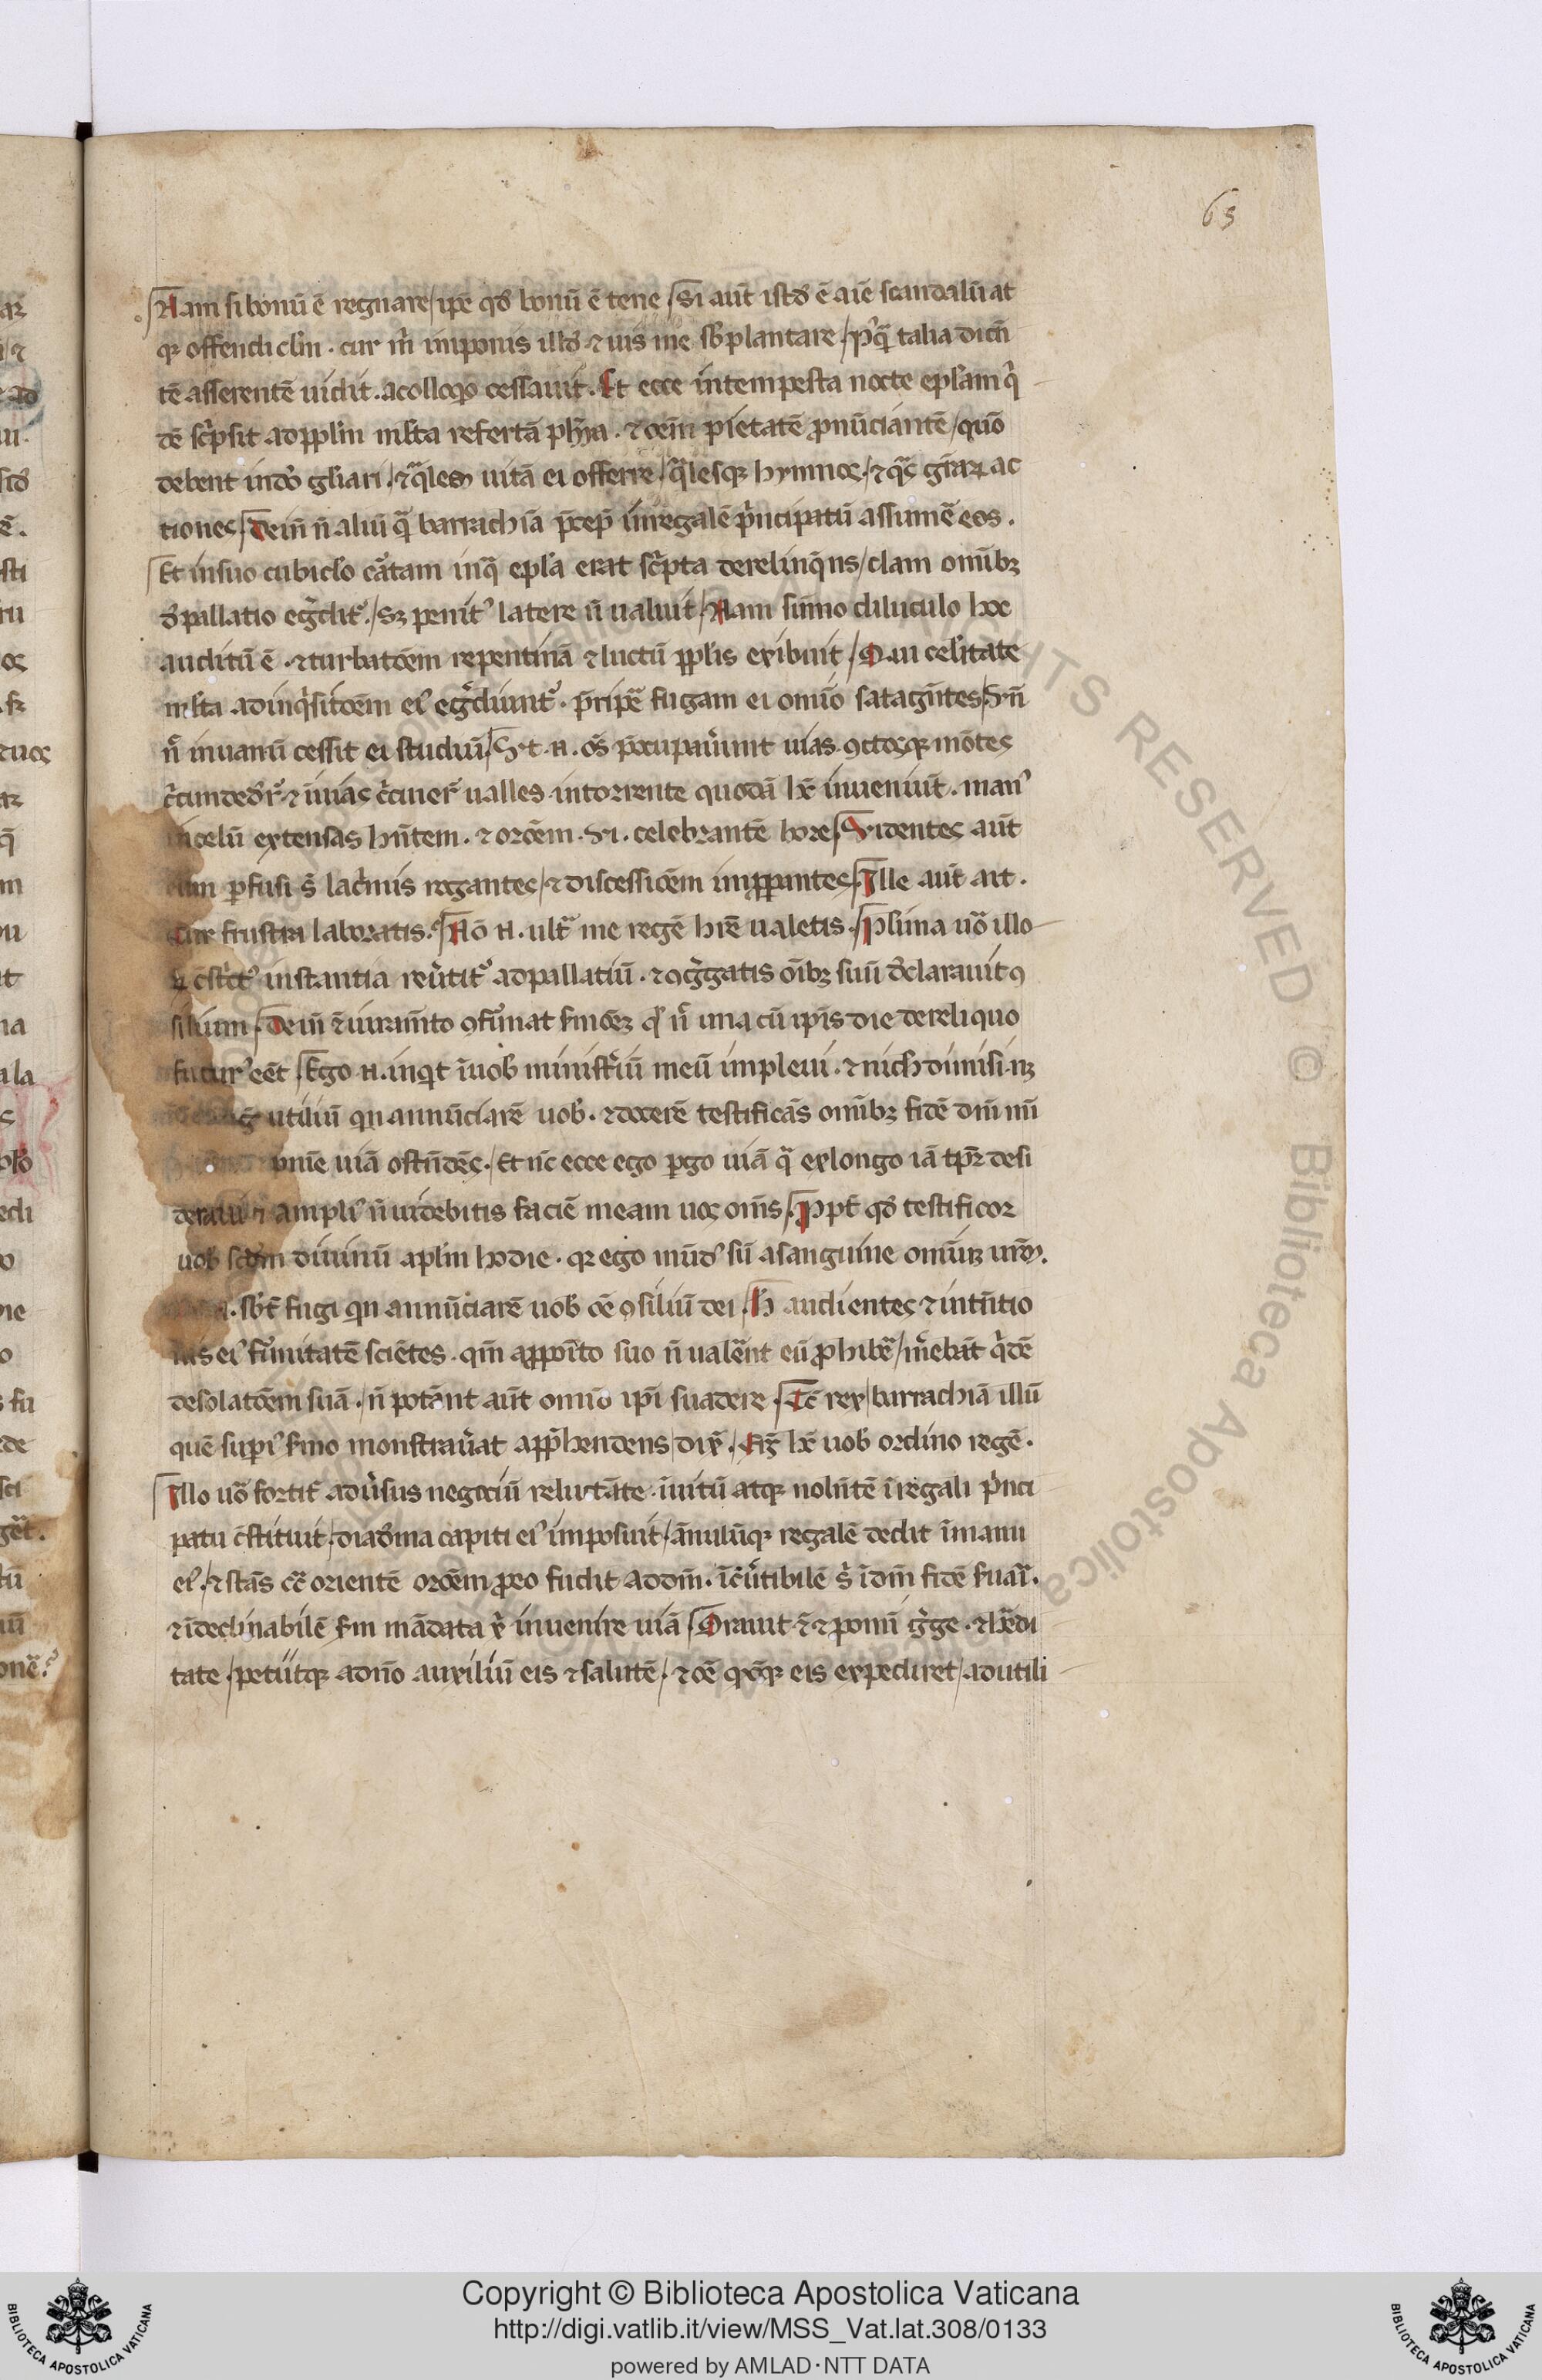 65
Nam si bonū ē regnare / ipē qđ bonū ē tene / Si aūt istđ ē aīe scandalū at
qꝫ offendiclm̄ · cur m̄ imponis illđ · ⁊ uis me sb̄plantare / pꝰq̄ talia dicn̄
tē asserentē uidit · a colloqo cessauit · Et ecce intempesta nocte epl̄am q̄
dē sc̄psit ad ppl̄m ml̄ta refertā ph̄ya · ⁊ oēm pietatē ꝓnūciantē / quō
debent in dō gl̄iari / ⁊ q̄lem uitā ei offerre / q̄lesqꝫ hymnos / ⁊ q̄s gr̄aꝝ ac
tiones / Dein̄ n̄ aliū q̄ barrachiā p̄cep̄ in regalē p̄ncipatū assumē eos .
Et in suo cubicl̄o cȃtam in q̄ epl̄a erat sc̄pta derelinq̄ns / clam om̄ibꝫ
đ pallatio egd̄itᷣ / sꝫ penitꝰ latere n̄ ualuit / Nam sūmo diluculo hoc
auditū ē · ⁊ turbatōem repentinā ⁊ luctū ppl̄is exibuit / Q m celitate
ml̄ta ad inq̄sitōem eiꝰ egd̄iuntᷣ · p̄ripē fugam ei omīo satagn̄tes / S n̄
n̄ in uanū cessit ei studiū / Vt · n · oēs p̄occupauer̄unt uias · ꝯctosqꝫ mōtes
c̄cundedr̄ᷣ ⁊ īuias c̄cuier̄ᷣ ualles · in torrente quodā hc̄ inueniūt · manꝰ
in celū extensas hn̄tem · ⁊ orōem · vi · celebrantē hore / Videntes aūt
eum ꝑfusi s̄ lac̄mis rogantes / ⁊ discessiōem impꝑantes / Ille aūt ait .
Cur frustra laboratis · Nō · n · ult̄ me regē hr̄e ualetis · Pl̄ima uō illo
ꝝ c̄strictꝰ instantia reūtitᷣ ad pallatiū · ⁊ ꝯḡgatis oībꝫ suū d̄clarauit ꝯ
silium · Dein̄ ⁊ iuram̄to ꝯfirmat sm̄oēꝫ qđ n̄ una cū ip̄is die de reliquo
futurꝰ eēt / Ego · n · inq̄t ī uob ministiū meū impleui · ⁊ nich dimisi
utiliū qn annūciarē uob · ⁊ docerē testificās om̄ibꝫ fidē dn̄i nr̄i
pn̄ie uiā ostn̄dēs · Et nc̄ ecce ego ꝑgo uiā q̄ ex longo iā tp̄r desi
deraui ⁊ ampliꝰ n̄ uidebitis faciē meam uos om̄s / Ppt̄ qđ testificor
uob scđm diuinū apl̄m hodie · qꝫ ego mūdꝰ sū a sanguine om̄iuꝫ ur̄m .
n · sbt̄fugi qn annūciarē uob oē ꝯsiliū dei · H audientes ⁊ intn̄tio
nis eiꝰ firmitatē sciētes · qm̄ apposīto suo n̄ ualēnt eū ꝓhibē / m̄ebāt q̄dē
desolatōem suā · n̄ potānt aūt omīo ip̄i suadere / Tc̄ rex / barrachiā illū
quē supiꝰ sm̄o monstrau̓at app̄hendens / dix̄ · Fr̄ hc̄ uob ordino regē .
Illo uō fortit̄ adu̓sus negociū reluctāte · īuitū atqꝫ noln̄tē ī regali p̄nci
patu c̄stituit / diadēma capiti eiꝰ imposuit / ānulūqꝫ regalē dedit ī manu
eiꝰ / ⁊ stās cc̄ orientē orōem ꝓ eo fudit ad dm̄ · īc̄u̓tibilē s̄ ī dm̄ fidē suaī .
⁊ īdeclinabilē sm̄ mādata x̄ inuenire uiā / Orauit · c̄ · ⁊ ꝓ om̄i g̓ge · ⁊ hēdi
tate / petiitqꝫ a dn̄o auxiliū eis ⁊ salutē / ⁊ oē qđqꝫ eis expediret / ad utili
Copyright © Biblioteca Apostolica Vaticana
http://digi.vatlib.it/view/MSS_Vat.lat.308/0133
powered by AMLAD·NTT DATA
BIBLIOTECA APOSTOLICA VATICANA
BIBLIOTECA APOSTOLICA VATICANA